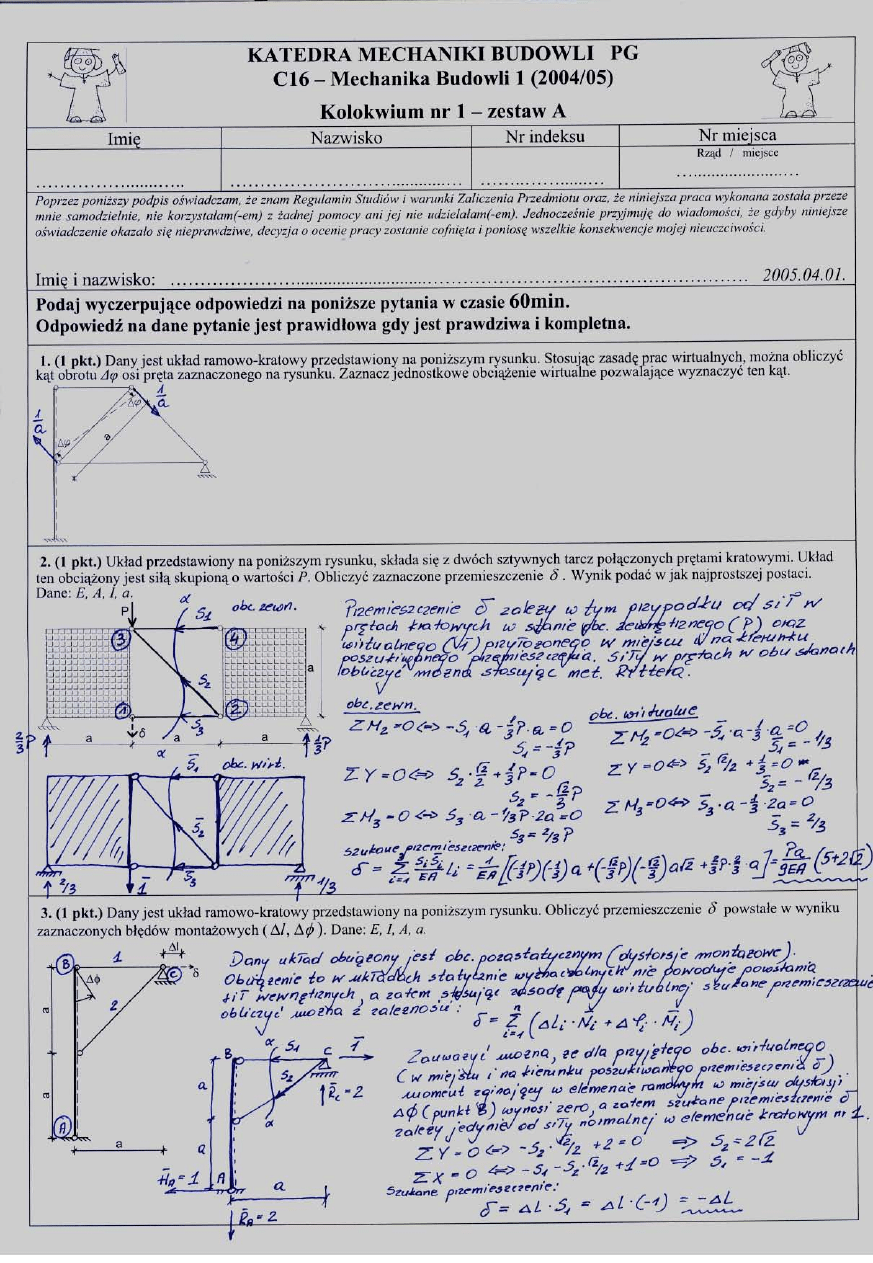 KATEDRA MECHANIKI BUDOWLI PG
C16 – Mechanika Budowli 1 (2004/05)
Kolokwium nr 1 – zestaw A
Imię Nazwisko Nr indeksu Nr miejsca
Rząd / miejsce
Poprzez poniższy podpis oświadczam, że znam Regulamin Studiów i warunki Zaliczenia Przedmiotu oraz, że niniejsza praca wykonana została przeze
mnie samodzielnie, nie korzystałam(-em) z żadnej pomocy ani jej nie udzielałam(-em). Jednocześnie przyjmuję do wiadomości, że gdyby niniejsze
oświadczenie okazało się nieprawdziwe, decyzja o ocenie pracy zostanie cofnięta i poniosę wszelkie konsekwencje mojej nieuczciwości.
Imię i nazwisko: ........ 2005.04.01.
Podaj wyczerpujące odpowiedzi na poniższe pytania w czasie 60min.
Odpowiedź na dane pytanie jest prawidłowa gdy jest prawdziwa i kompletna.
1. (1 pkt.) Dany jest układ ramowo-kratowy przedstawiony na poniższym rysunku. Stosując zasadę prac wirtualnych, można obliczyć
kąt obrotu Δφ osi pręta zaznaczonego na rysunku. Zaznacz jednostkowe obciążenie wirtualne pozwalające wyznaczyć ten kąt.
1/a
Δφ
1/a
Δφ
a
2. (1 pkt.) Układ przedstawiony na poniższym rysunku, składa się z dwóch sztywnych tarcz połączonych prętami kratowymi. Układ
ten obciążony jest siłą skupioną o wartości P. Obliczyć zaznaczone przemieszczenie δ . Wynik podać w jak najprostszej postaci.
Dane: E, A, I, a.
P α S1 obc. zewn.
3 4
S2 a
1 2
S3
2/3P a δ a a 1/3P
α
S̄1 obc. wirt.
S̄2
S̄3
2/3 1̄ 1/3
Przemieszczenie δ zależy w tym przypadku od sił w
prętach kratowych w stanie obc. zewnętrznego (P) oraz
wirtualnego (1̄) przyłożonego w miejscu i na kierunku
poszukiwanego przemieszczenia. Siły w prętach w obu stanach
obliczyć można stosując met. Rittera.
obc. zewn.
ΣM2=0 ⇔ -S1·a-1/3P·a=0
S1=-1/3P
ΣY=0 ⇔ S2·√2/2+1/3P=0
S2=-√2/3P
ΣM3=0 ⇔ S3·a-1/3P·2a=0
S3=2/3P
obc. wirtualne
ΣM2=0 ⇔ -S̄1·a-1/3·a=0
S̄1=-1/3
ΣY=0 ⇔ S̄2√2/2+1/3=0
S̄2=-√2/3
ΣM3=0 ⇔ S̄3·a-1/3·2a=0
S̄3=2/3
szukane przemieszczenie:
δ=Σ SiS̄i/EA Li=1/EA[(-1/3P)(-1/3)a+(-√2/3P)(-√2/3)a√2+2/3P·2/3·a]=Pa/9EA(5+2√2)
3. (1 pkt.) Dany jest układ ramowo-kratowy przedstawiony na poniższym rysunku. Obliczyć przemieszczenie δ powstałe w wyniku
zaznaczonych błędów montażowych ( Δl, Δϕ ). Dane: E, I, A, a.
B 1 Δl
C δ
Δϕ
a 2
a
A
a
Dany układ obciążony jest obc. pozastatycznym (dystorsje montażowe).
Obciążenie to w układach statycznie wyznaczalnych nie powoduje powstania
sił wewnętrznych, a zatem stosując zasadę pracy wirtualnej szukane przemieszczenie
obliczyć można z zależności:
δ=Σ(ΔLi·N̄i+Δφi·M̄i)
α S1 C 1̄
B S2
a α R̄C=2
a
H̄A=1 A a
R̄A=2
Zauważyć można, że dla przyjętego obc. wirtualnego
(w miejscu i na kierunku poszukiwanego przemieszczenia δ)
moment zginający w elemencie ramowym w miejscu dystorsji
Δϕ (punkt B) wynosi zero, a zatem szukane przemieszczenie δ
zależy jedynie od siły normalnej w elemencie kratowym nr 1.
ΣY=0 ⇔ -S2·√2/2+2=0 ⇒ S2=2√2
ΣX=0 ⇔ -S1-S2·√2/2+1=0 ⇒ S1=-1
Szukane przemieszczenie:
δ=ΔL·S1=ΔL·(-1)=-ΔL